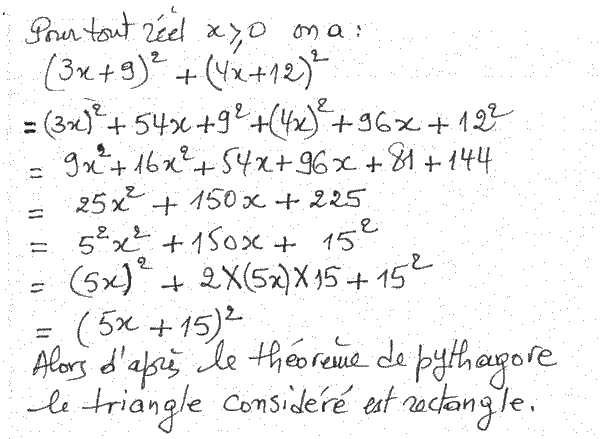 Pour tout réel x ⩾ 0 on a :
(3x+9)² + (4x+12)²
= (3x)² + 54x + 9² + (4x)² + 96x + 12²
= 9x² + 16x² + 54x + 96x + 81 + 144
= 25x² + 150x + 225
= 5²x² + 150x + 15²
= (5x)² + 2×(5x)×15 + 15²
= (5x + 15)²
Alors d'après le théorème de pythagore
le triangle considéré est rectangle.